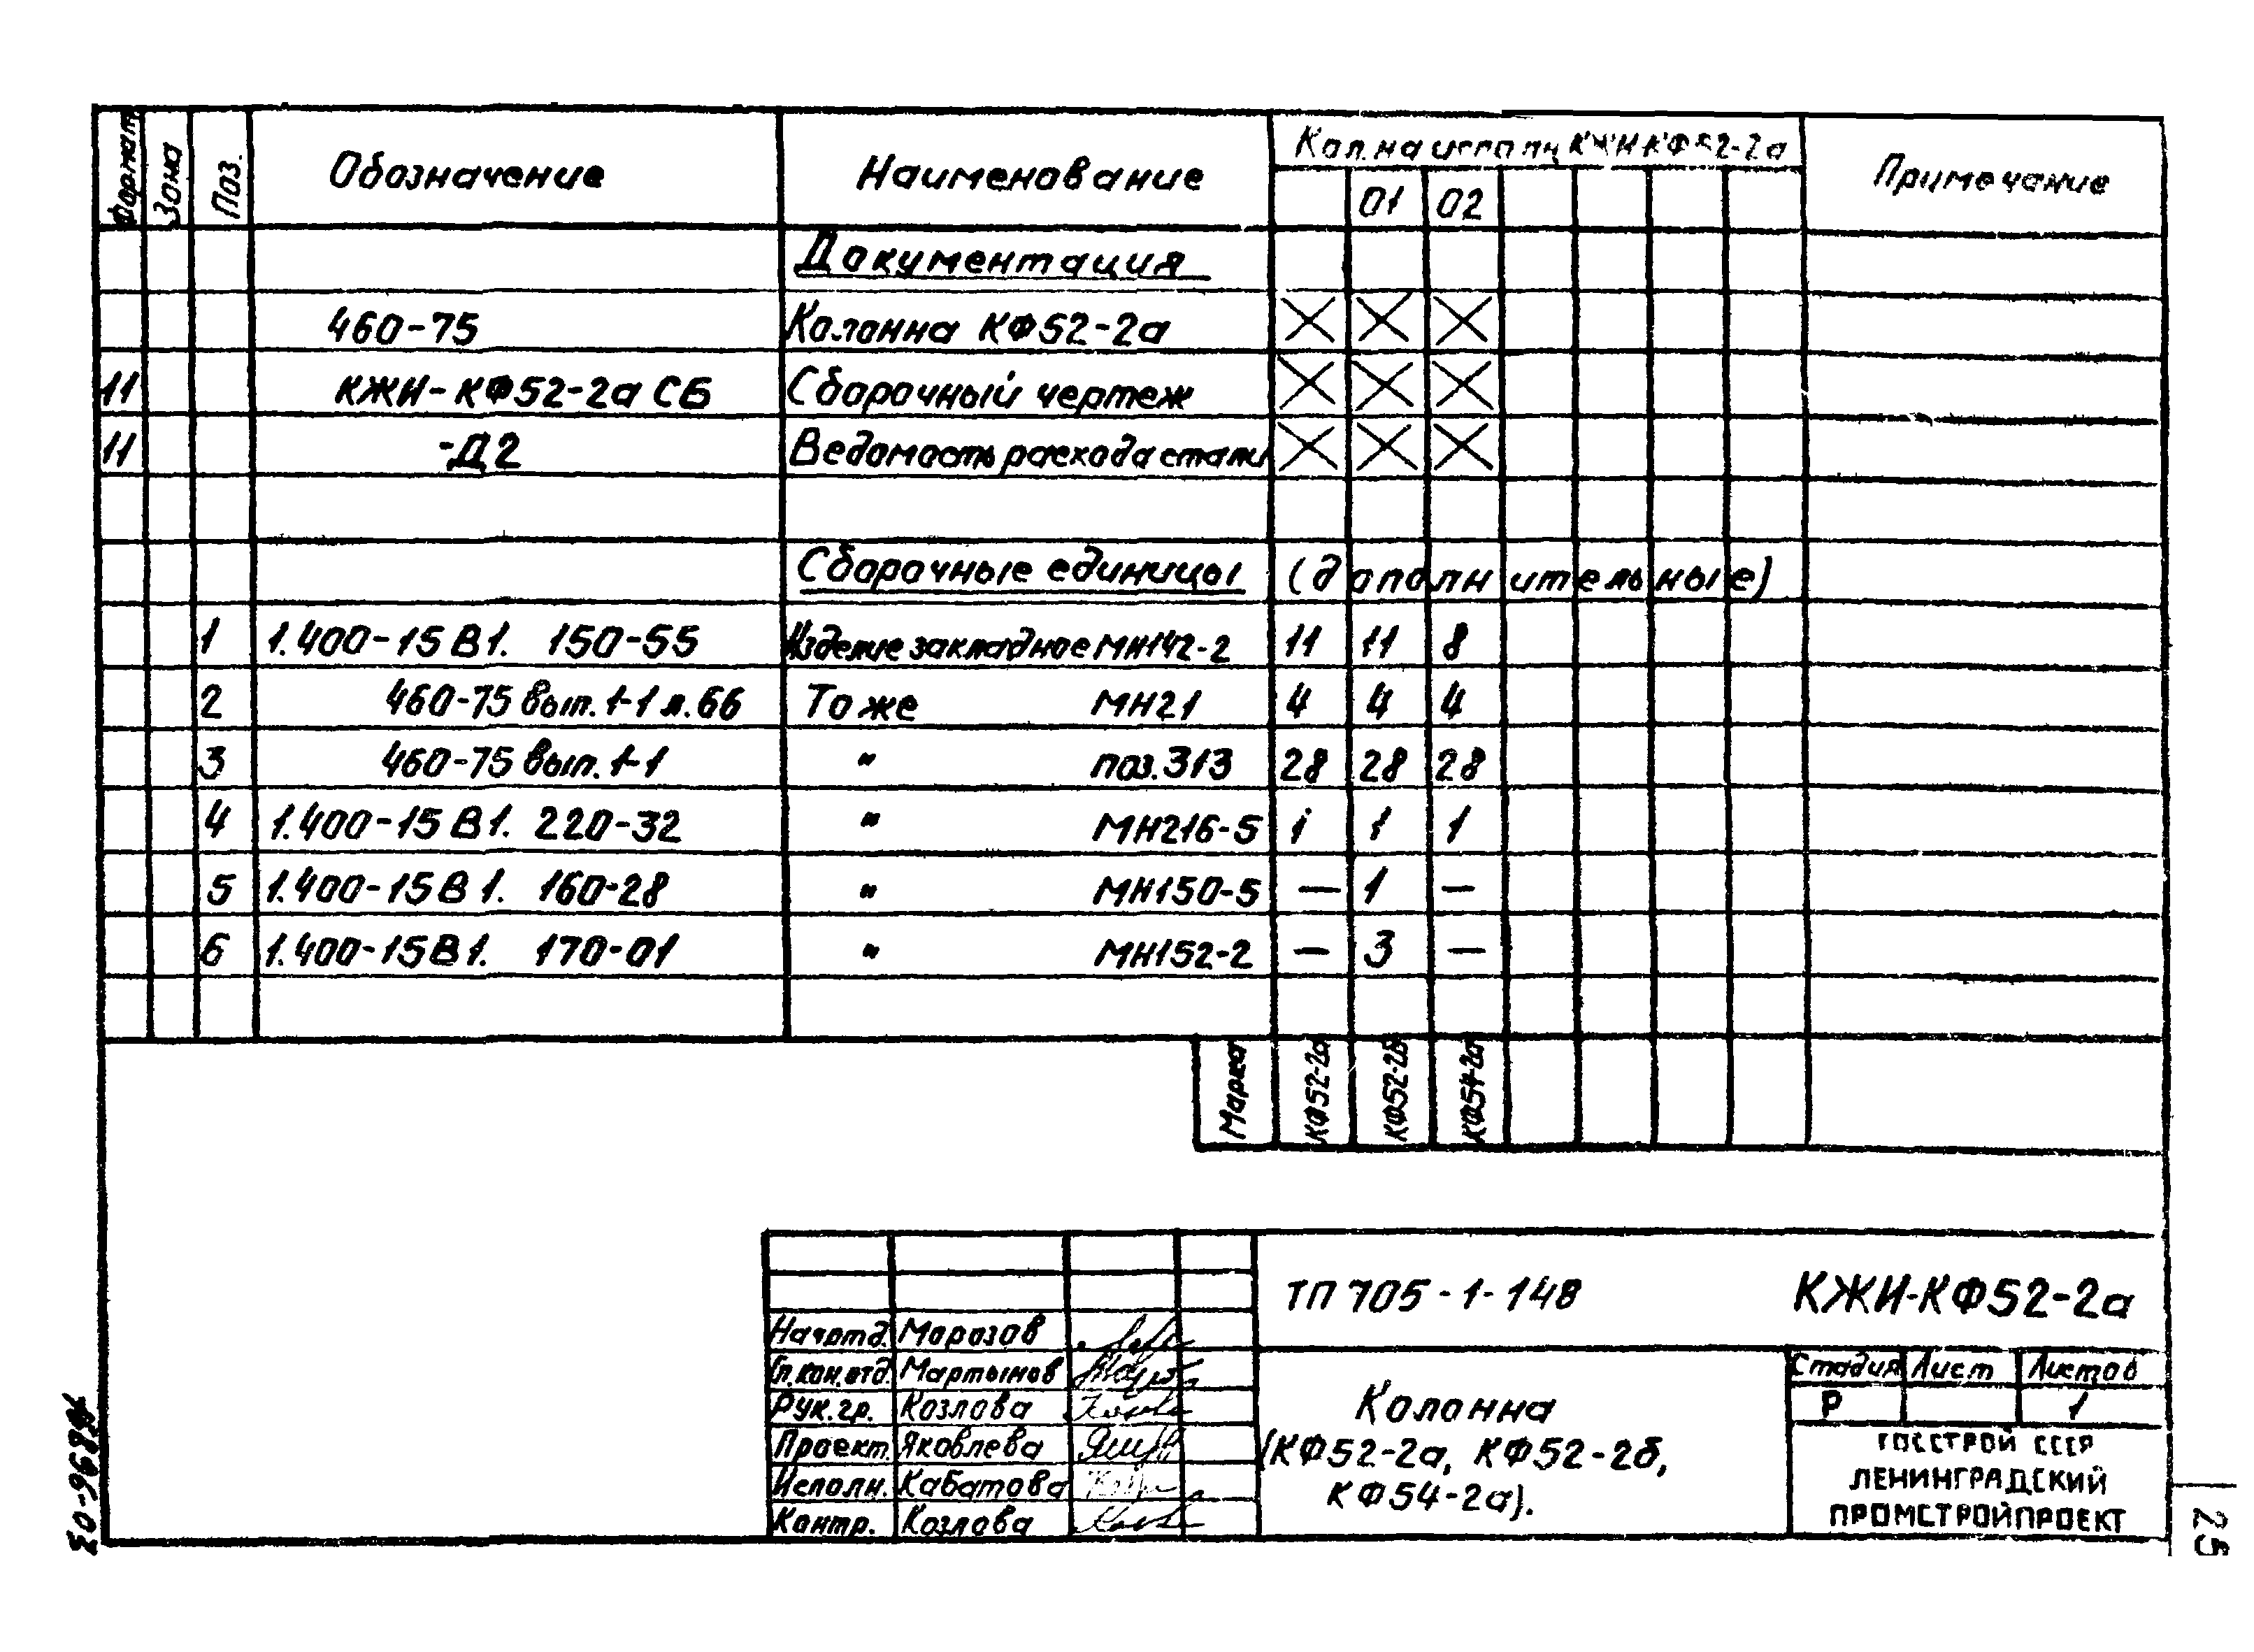 Формат Зона Поз. Обозначение Наименование Кол. на исполн КЖИ КФ52-2а Примечание
01 02
Документация
460-75 Колонна КФ52-2а
11 КЖИ-КФ52-2а СБ Сборочный чертеж
11 -Д2 Ведомость расхода стали
Сборочные единицы (дополнительные)
1 1.400-15 В1. 150-55 Изделие закладное МН142-2 11 11 8
2 460-75 вып. 1-1 л. 66 То же МН21 4 4 4
3 460-75 вып. 1-1 " поз. 313 28 28 28
4 1.400-15 В1. 220-32 " МН216-5 1 1 1
5 1.400-15 В1. 160-28 " МН150-5 — 1 —
6 1.400-15 В1. 170-01 " МН152-2 — 3 —
Марка КФ52-2а КФ52-2б КФ54-2а
ТП 705-1-148 КЖИ-КФ52-2а
Нач.отд. Морозов
Гл.кон.отд. Мартынов
Рук. гр. Козлова
Проект. Яковлева
Исполн. Кабатова
Контр. Козлова
Колонна
(КФ52-2а, КФ52-2б,
КФ54-2а).
Стадия Лист Листов
Р 1
ГОССТРОЙ СССР
ЛЕНИНГРАДСКИЙ
ПРОМСТРОЙПРОЕКТ
25